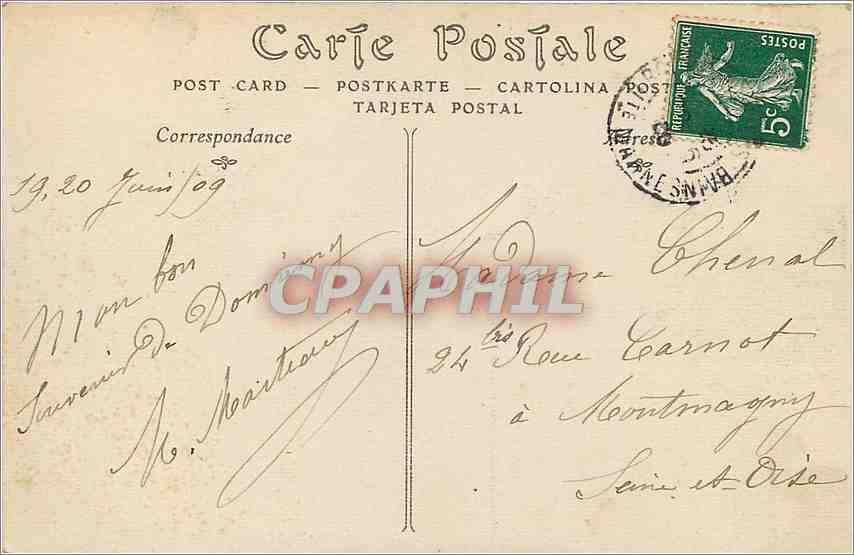 Carte Postale
POST CARD — POSTKARTE — CARTOLINA POST
TARJETA POSTAL
Correspondance
Adresse
RÉPUBLIQUE FRANÇAISE
POSTES
5c
19, 20 Juin/09
Mon bon
Souvenir de Domremy
M.
Madame Chenal
24 bis Rue Carnot
à Montmagny
Seine et-Oise
CPAPHIL